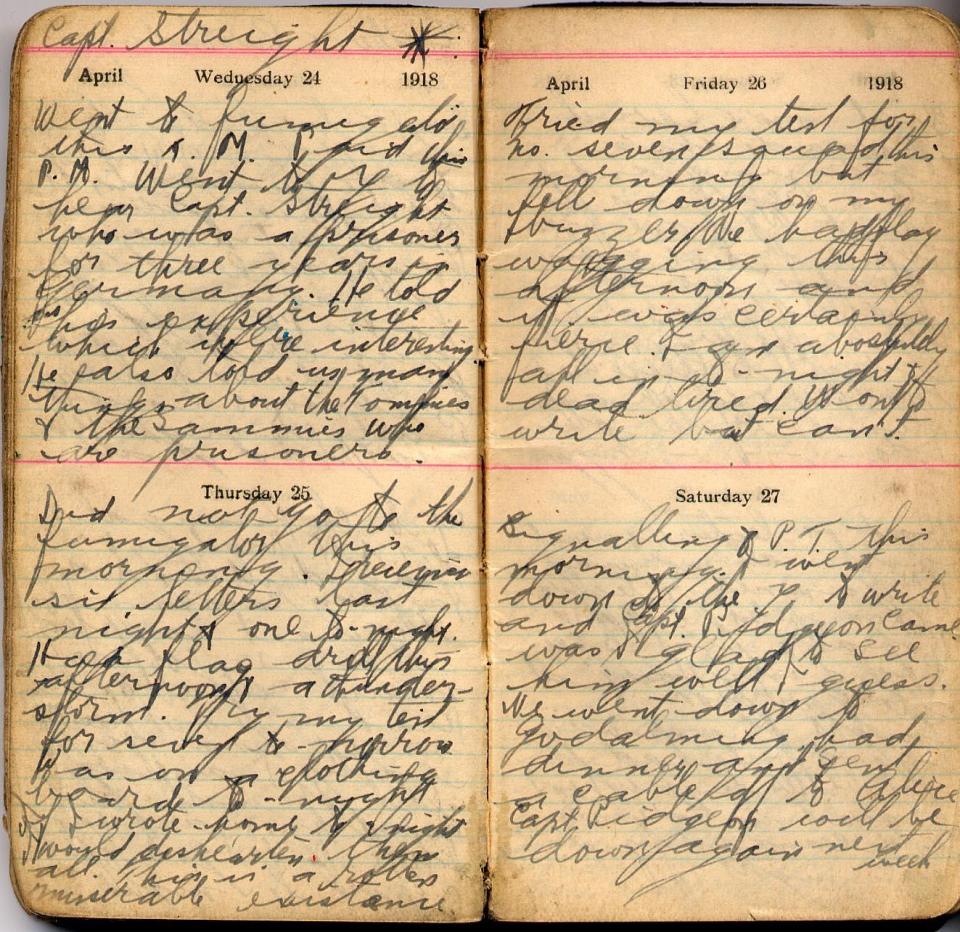 Capt. Streight
April Wednesday 24 1918
Went to fumigator
this A. M. and this
P. M. Went to Y to
hear Capt. Streight
who was a prisoner
for three years in
Germany. He told
his experience
which were interesting
He also told us many
things about the Tommies
& the Sammies who
are prisoners.
Thursday 25
Did not go to the
fumigator this
morning. I received
six letters last
night & one to-night.
Had flag drill this
afternoon & a thunder-
storm. Try my test
for seven to-morrow
was on a clothing
board to-night
If I wrote home to-night
would dishearten them
all. This is a rotten
miserable existence.
April Friday 26 1918
Tried my test for
no. seven squad this
morning but
fell down on my
buzzer. We had flag
wagging this
afternoon and
it was certainly
fierce. I am absolutely
all in to-night &
dead tired. Want to
write but can't.
Saturday 27
Signalling & P. T. this
morning. I went
down to the Y to write
and Capt. Pidgeon came
was I glad to see
him well I guess.
We went down to
Godalming had
dinner and sent
a cable to
Capt. Pidgeon will be
down again next
week